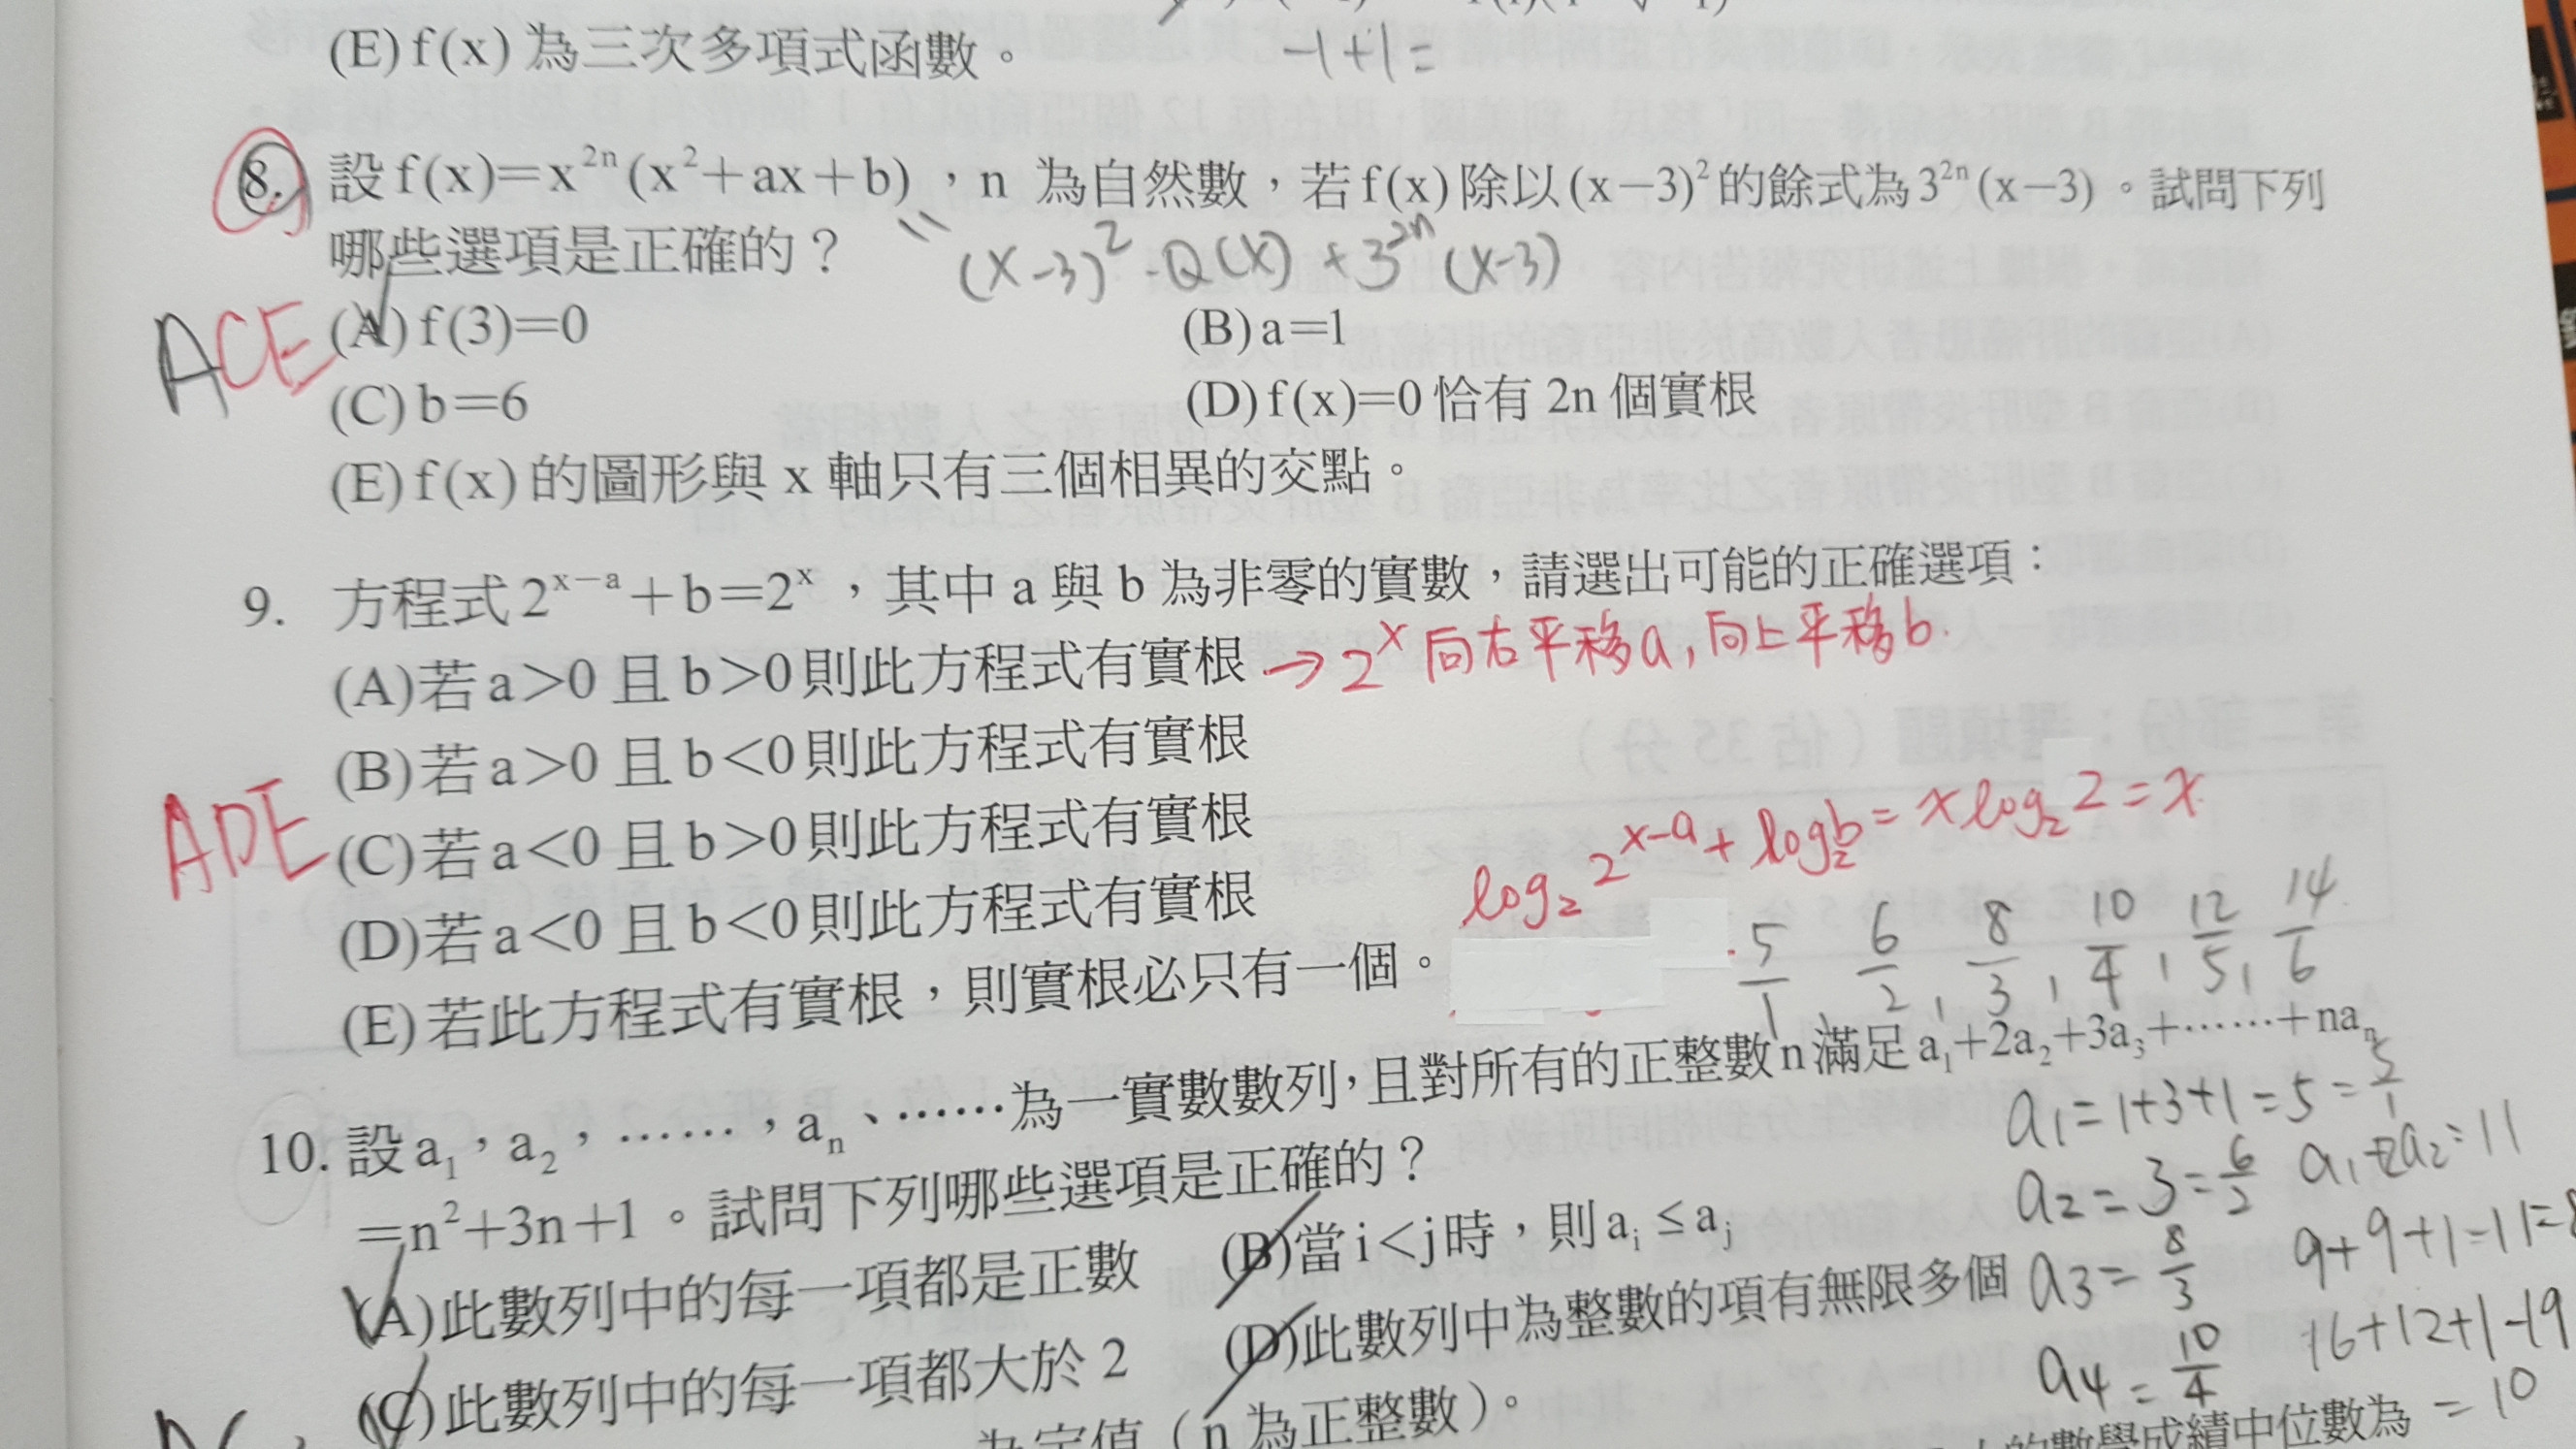 (E) f(x) 為三次多項式函數。
-1+1=
8. 設 f(x)=x^{2n}(x^2+ax+b),n 為自然數,若 f(x) 除以 (x-3)^2 的餘式為 3^{2n}(x-3)。試問下列
哪些選項是正確的?
= (x-3)^2 · Q(x) + 3^{2n} (x-3)
ACE
(A) f(3)=0
(B) a=1
(C) b=6
(D) f(x)=0 恰有 2n 個實根
(E) f(x) 的圖形與 x 軸只有三個相異的交點。
9. 方程式 2^{x-a}+b=2^x,其中 a 與 b 為非零的實數,請選出可能的正確選項:
(A)若 a>0 且 b>0 則此方程式有實根 → 2^x 向右平移a,向上平移b.
(B)若 a>0 且 b<0 則此方程式有實根
ADE
(C)若 a<0 且 b>0 則此方程式有實根
log_2 2^{x-a} + log_2 b = x log_2 2 = x
(D)若 a<0 且 b<0 則此方程式有實根
(E)若此方程式有實根,則實根必只有一個。
5/1, 6/2, 8/3, 10/4, 12/5, 14/6
10. 設 a_1,a_2,……,a_n、……為一實數數列,且對所有的正整數 n 滿足 a_1+2a_2+3a_3+……+na_n
=n^2+3n+1。試問下列哪些選項是正確的?
a_1=1+3+1=5=5/1
a_2=3=6/2 a_1+2a_2=11
(A)此數列中的每一項都是正數
(B)當 i<j 時,則 a_i ≤ a_j
a_3=8/3 9+9+1-11=8
(C)此數列中的每一項都大於 2
(D)此數列中為整數的項有無限多個
a_4=10/4 16+12+1-19
=10
為定值(n 為正整數)。
的數學成績中位數為